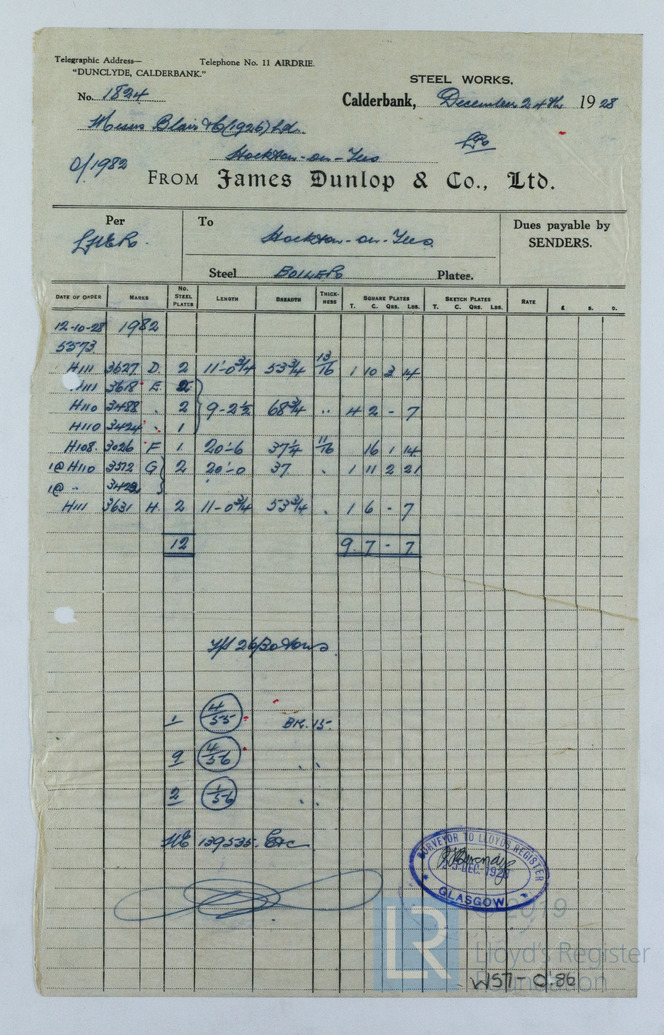 Telegraphic Address— Telephone No. 11 AIRDRIE.
"DUNCLYDE, CALDERBANK."
STEEL WORKS,
No. 1824 Calderbank, December 24th 1928
Messrs Blair & Co (1926) Ld.
Stockton-on-Tees LR
O/1982
FROM James Dunlop & Co., Ltd.
Per To Dues payable by
Stockton-on-Tees SENDERS.
Steel BOILER Plates.
DATE OF ORDER MARKS NO. STEEL PLATES LENGTH BREADTH THICKNESS SQUARE PLATES SKETCH PLATES RATE £ S. D.
T. C. QRS. LBS. T. C. QRS. LBS.
12-10-28 1982
5573
H111 3627 D. 2 11-0 3/4 53 3/4 13/16 1 10 3 14
H111 3618 E
H110 3488 " 2 9-2 1/2 68 3/4 " 4 2 - 7
H110 3424 " 1
H108 3026 F 1 20-6 37 1/4 11/16 16 1 14
1@ H110 3572 G 2 20-0 37 " 1 11 2 21
1@ "
H111 3631 H 2 11-0 3/4 53 3/4 " 1 6 - 7
12 9 7 - 7
1 4/55 BK. 15.
9 4/56 " "
2 1/56 " "
139535 Etc
SURVEYOR TO LLOYD'S REGISTER
DEC. 192
GLASGOW
LR
© 2019
Lloyd's Register
Foundation
W157-0.86